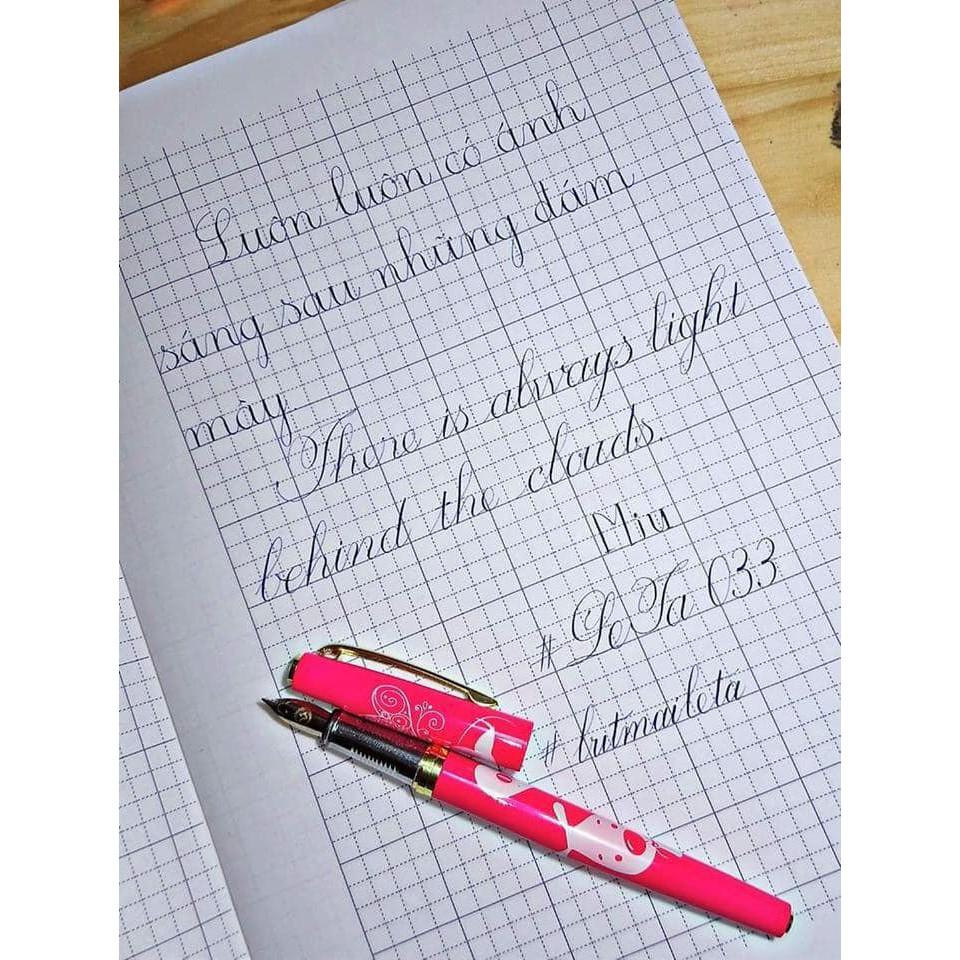 Luôn luôn có ánh
sáng sau những đám
mây.
There is always light
behind the clouds.
Miu
# LeTa 033
# butmaileta